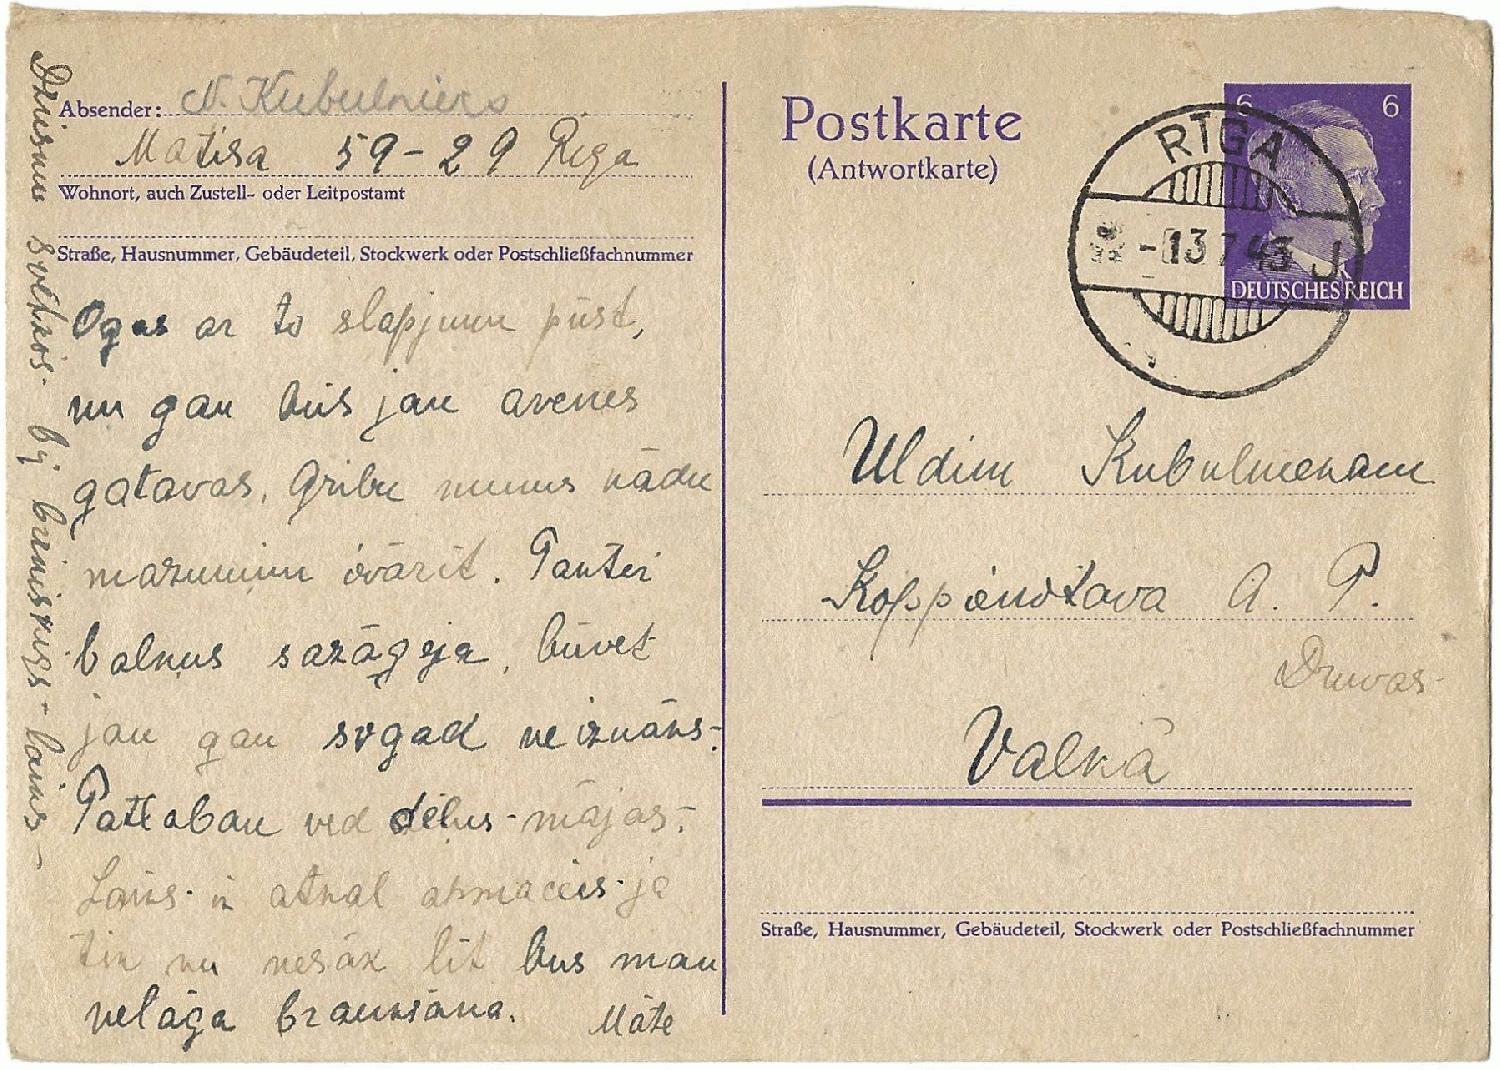 Absender: N. Kubulnieks
Matisa 59-29 Riga
Wohnort, auch Zustell- oder Leitpostamt
Straße, Hausnummer, Gebäudeteil, Stockwerk oder Postschließfachnummer
Ogas ar to slapjumu pūst,
nu gan būs jau avenes
gatavas. Gribu mums kādu
mazumiņu ivārit. Tantei
balkus sazāgeja, būvet
jau gan sogad neiznāks.
Patlaban ved dēlus mājas.
Laiks ir atkal apmācies ja
tik nu nesāk līt būs man
velāga braukšana. Māte
Dziesmu svētkos bij brinišķigs laiks
Postkarte
(Antwortkarte)
6 6
RIGA
-13 7 43 J
DEUTSCHES REICH
Uldim Kubulniekam
Koppienotava A. P.
Druvas
Valkā
Straße, Hausnummer, Gebäudeteil, Stockwerk oder Postschließfachnummer